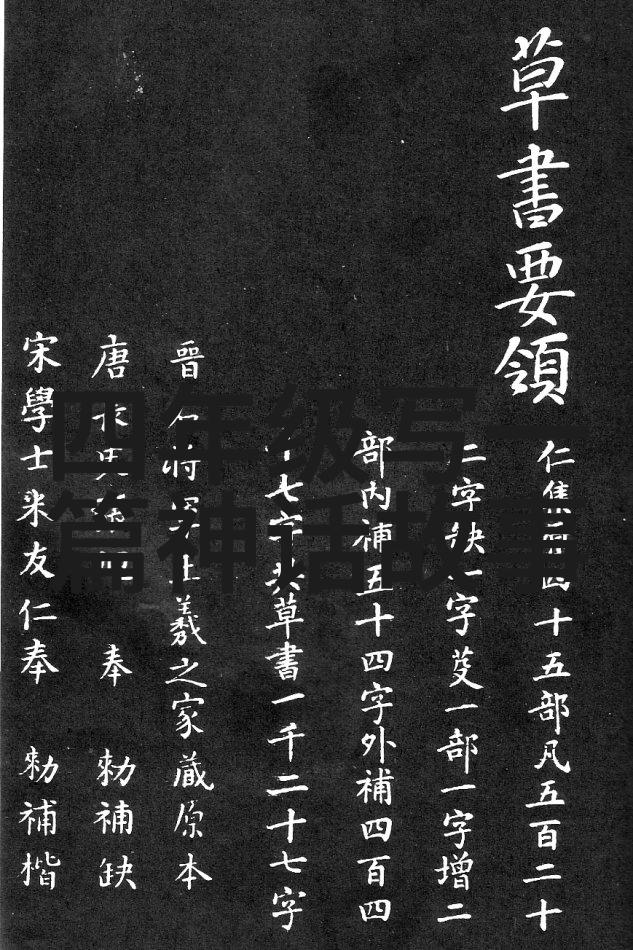 草書要領
仁集二百四十五部凡五百二十
二字缺一字芟一部一字增二
部内補五十四字外補四百四
十七字共草書一千二十七字
晉右將軍王羲之家藏原本
唐長史 奉 勑補缺
宋學士米友仁奉 勑補楷
四年级写一
篇神话故事